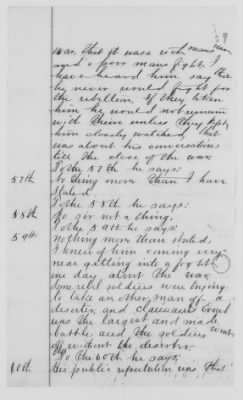 29
war. That it was a rich mans war
and a poor mans fight. I
have heard him say that
he never would fight for
the rebellion. If they taken
him he would not remain
with them unless they kept
him closely watched, that
was about his conversations
till the close of the war.
To the 57th he says:
57th
nothing more than I have
stated.
To the 58th he says:
58th
No sir not a thing.
To the 59th he says:
59th
Nothing more than stated.
I knew of him coming very
near getting into a fight
one day about the war.
Some rebel soldiers were trying
to take another man off a
deserter, and claimant
was the largest and made
battle and the soldiers went
off without the deserter.
To the 60th he says:
60th
His public reputation was that